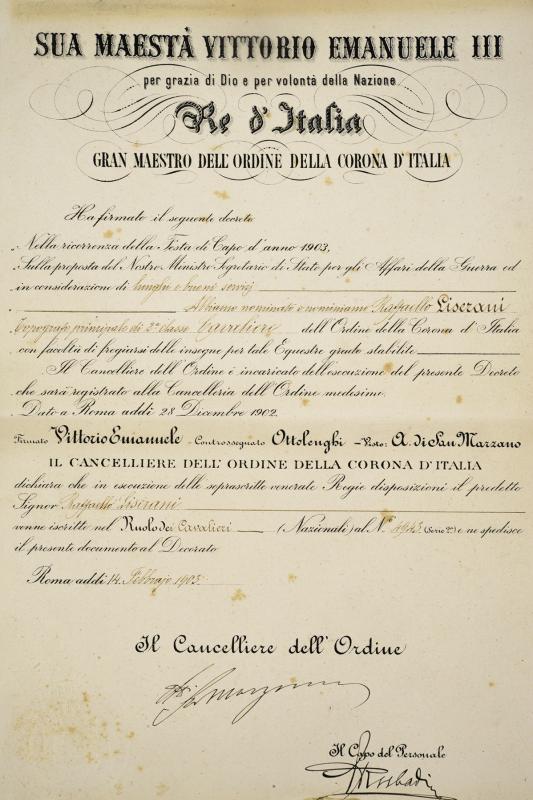 SUA MAESTÀ VITTORIO EMANUELE III
per grazia di Dio e per volontà della Nazione
Re d'Italia
GRAN MAESTRO DELL'ORDINE DELLA CORONA D'ITALIA
Ha firmato il seguente decreto
Nella ricorrenza della Festa di Capo d'anno 1903,
Sulla proposta del Nostro Ministro Segretario di Stato per gli Affari della Guerra ed
in considerazione di lunghi e buoni servizj
Abbiamo nominato e nominiamo Raffaello Liserani
Topografo principale di 2ª classe Cavaliere dell'Ordine della Corona d'Italia
con facoltà di fregiarsi delle insegne per tale Equestre grado stabilite
Il Cancelliere dell'Ordine è incaricato dell'esecuzione del presente Decreto
che sarà registrato alla Cancelleria dell'Ordine medesimo.
Dato a Roma addì 28 Dicembre 1902.
Firmato Vittorio Emanuele - Controssegnato Ottolenghi - Visto: A. di San Marzano
IL CANCELLIERE DELL'ORDINE DELLA CORONA D'ITALIA
dichiara che in esecuzione delle soprascritte venerate Regie disposizioni il predetto
Signor Raffaello Liserani
venne iscritto nel Ruolo dei Cavalieri (Nazionali) al N.° (Serie 2ª) e ne spedisce
il presente documento al Decorato
Roma addì 14 Febbrajo 1903.
Il Cancelliere dell'Ordine
Il Capo del Personale